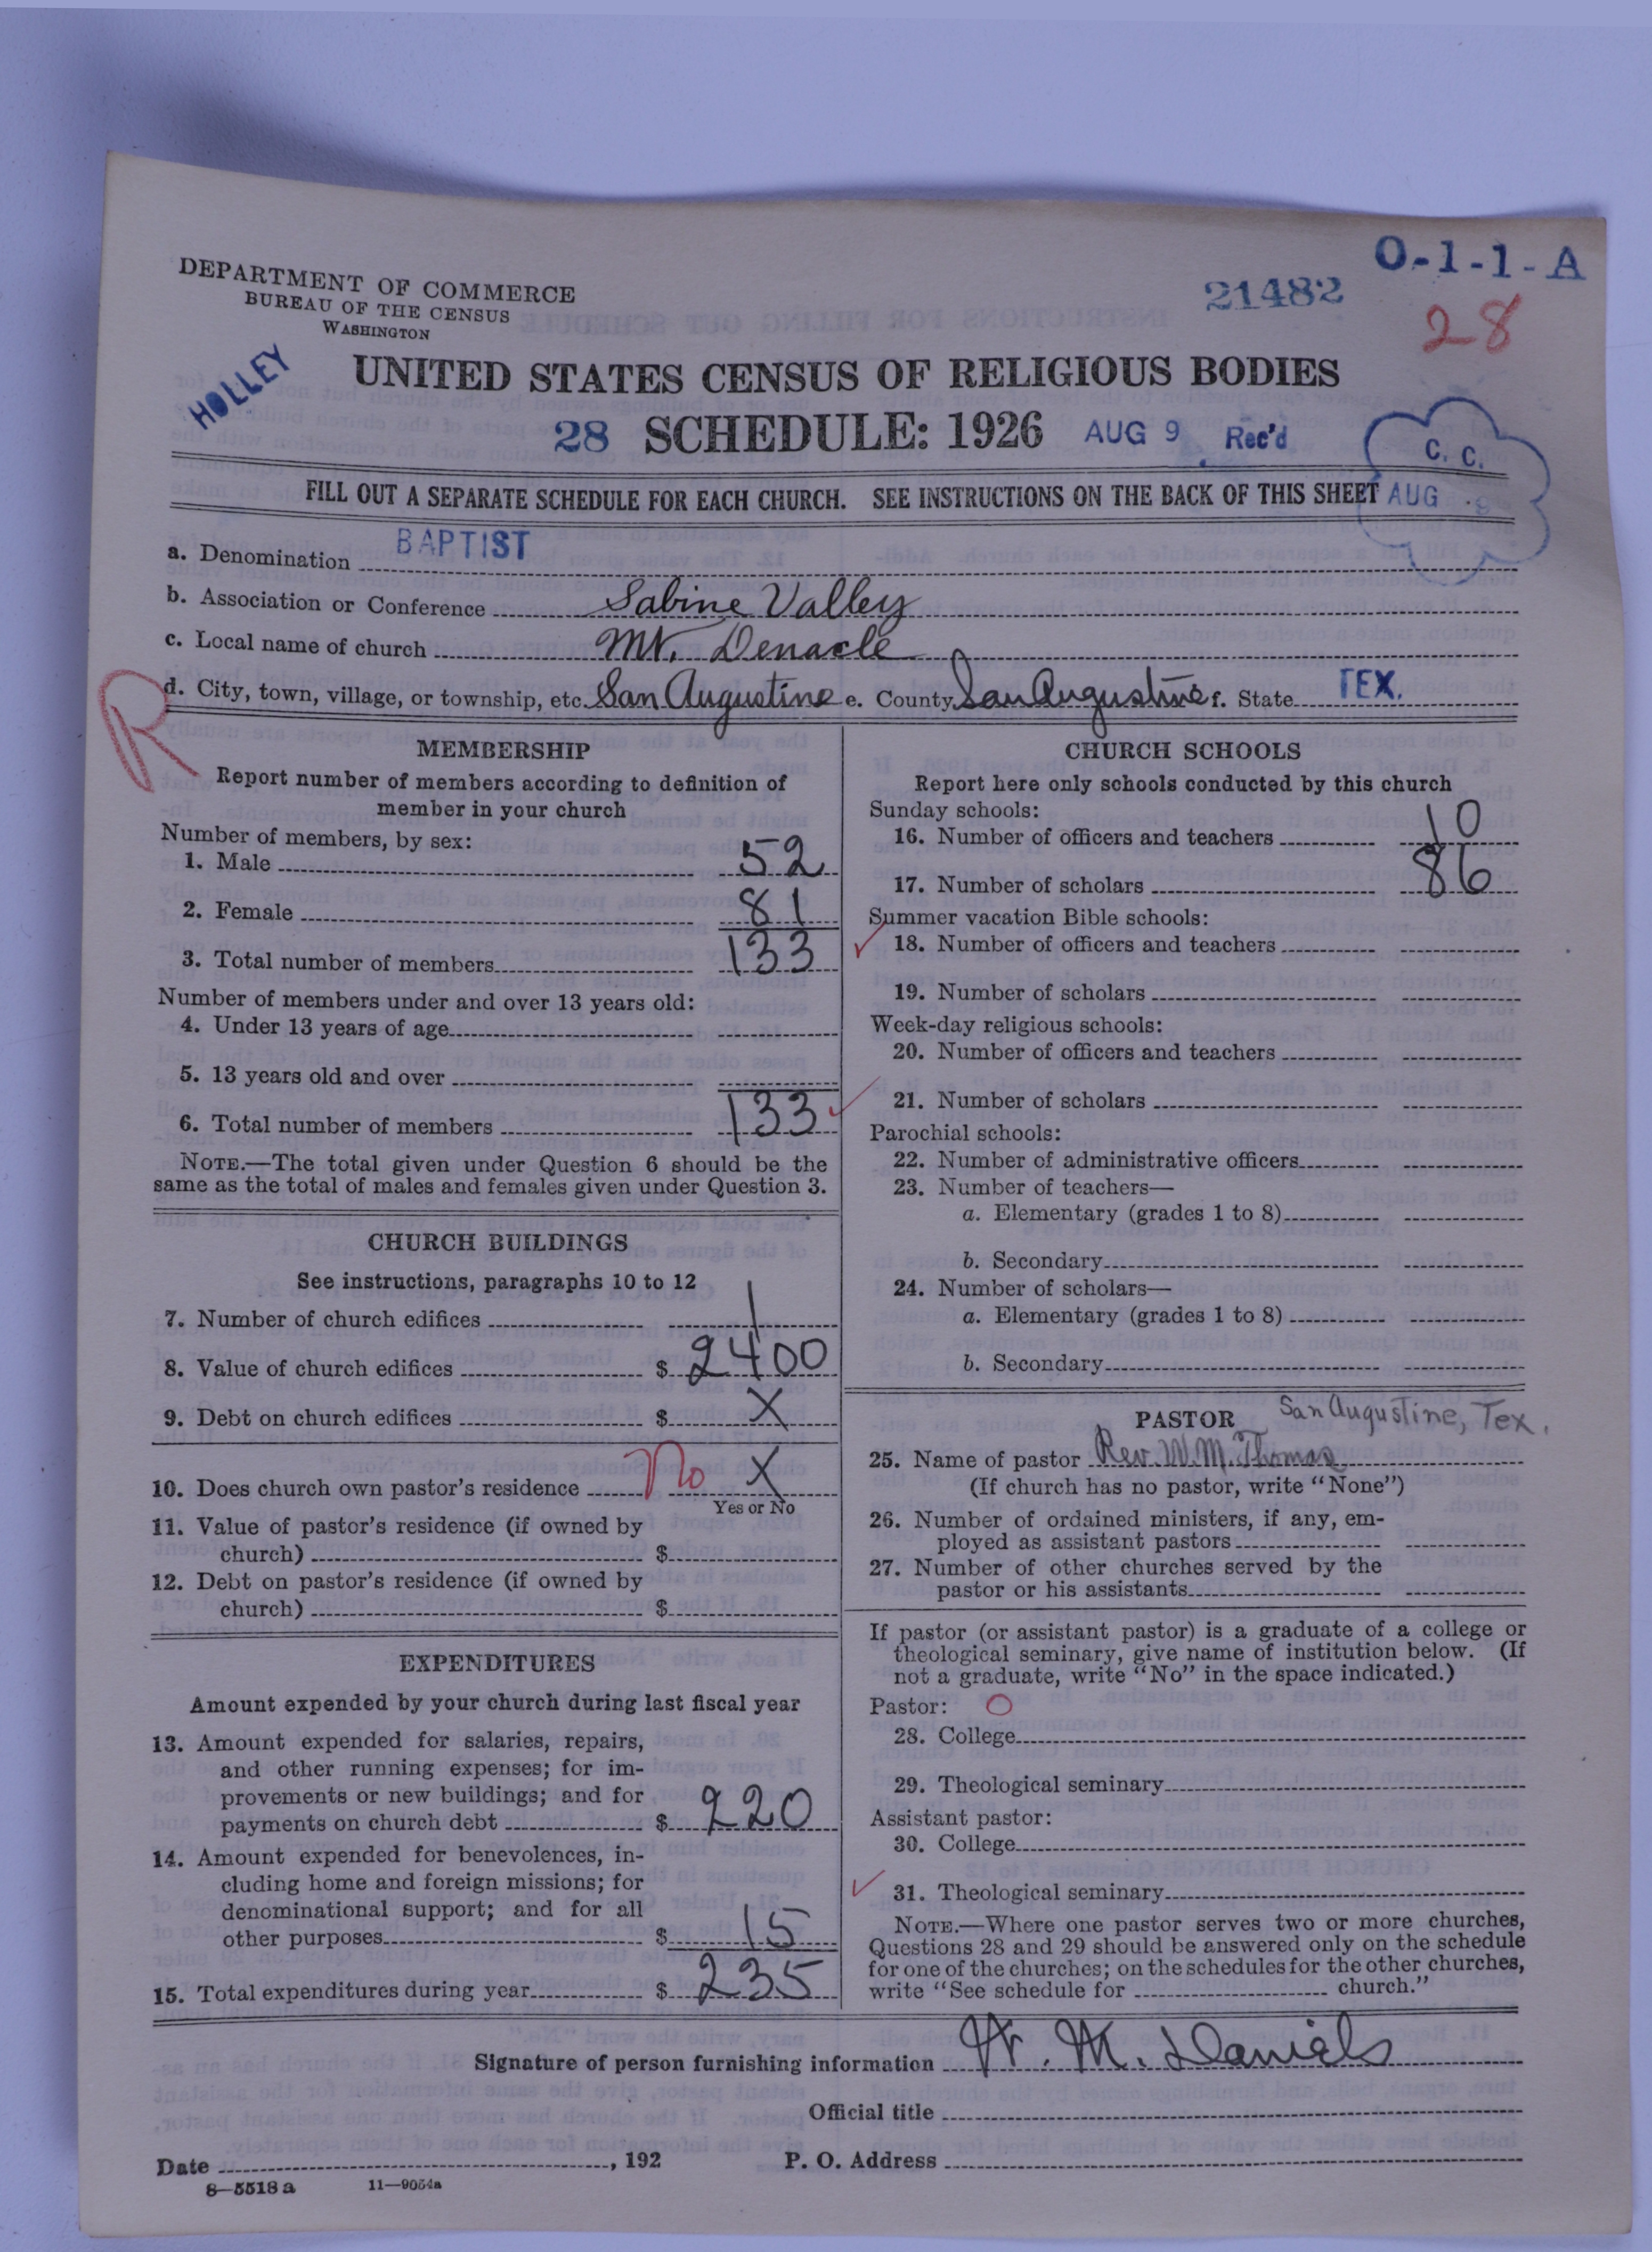 O-1-1-A
21482
28
DEPARTMENT OF COMMERCE
BUREAU OF THE CENSUS
WASHINGTON
HOLLEY
UNITED STATES CENSUS OF RELIGIOUS BODIES
28 SCHEDULE: 1926 AUG 9 Rec'd
C. C.
FILL OUT A SEPARATE SCHEDULE FOR EACH CHURCH. SEE INSTRUCTIONS ON THE BACK OF THIS SHEET AUG 9
a. Denomination BAPTIST
b. Association or Conference Sabine Valley
c. Local name of church Mt. Denacle
d. City, town, village, or township, etc. San Augustine e. County San Augustine f. State TEX.
R
MEMBERSHIP
Report number of members according to definition of
member in your church
Number of members, by sex:
1. Male 52
2. Female 81
3. Total number of members 133
Number of members under and over 13 years old:
4. Under 13 years of age
5. 13 years old and over
6. Total number of members 133
NOTE.—The total given under Question 6 should be the
same as the total of males and females given under Question 3.
CHURCH BUILDINGS
See instructions, paragraphs 10 to 12
7. Number of church edifices 1
8. Value of church edifices $ 2400
9. Debt on church edifices $ X
10. Does church own pastor's residence No X
Yes or No
11. Value of pastor's residence (if owned by
church) $
12. Debt on pastor's residence (if owned by
church) $
EXPENDITURES
Amount expended by your church during last fiscal year
13. Amount expended for salaries, repairs,
and other running expenses; for im-
provements or new buildings; and for
payments on church debt $ 220
14. Amount expended for benevolences, in-
cluding home and foreign missions; for
denominational support; and for all
other purposes $ 15
15. Total expenditures during year $ 235
CHURCH SCHOOLS
Report here only schools conducted by this church
Sunday schools:
16. Number of officers and teachers 10
17. Number of scholars 86
Summer vacation Bible schools:
18. Number of officers and teachers
19. Number of scholars
Week-day religious schools:
20. Number of officers and teachers
21. Number of scholars
Parochial schools:
22. Number of administrative officers
23. Number of teachers—
a. Elementary (grades 1 to 8)
b. Secondary
24. Number of scholars—
a. Elementary (grades 1 to 8)
b. Secondary
PASTOR San Augustine, Tex.
25. Name of pastor Rev. W. M. Thomas
(If church has no pastor, write "None")
26. Number of ordained ministers, if any, em-
ployed as assistant pastors
27. Number of other churches served by the
pastor or his assistants
If pastor (or assistant pastor) is a graduate of a college or
theological seminary, give name of institution below. (If
not a graduate, write "No" in the space indicated.)
Pastor: O
28. College
29. Theological seminary
Assistant pastor:
30. College
31. Theological seminary
NOTE.—Where one pastor serves two or more churches,
Questions 28 and 29 should be answered only on the schedule
for one of the churches; on the schedules for the other churches,
write "See schedule for church."
Signature of person furnishing information W. M. Daniels
Official title
Date , 192 P. O. Address
8—5518 a 11—9054a